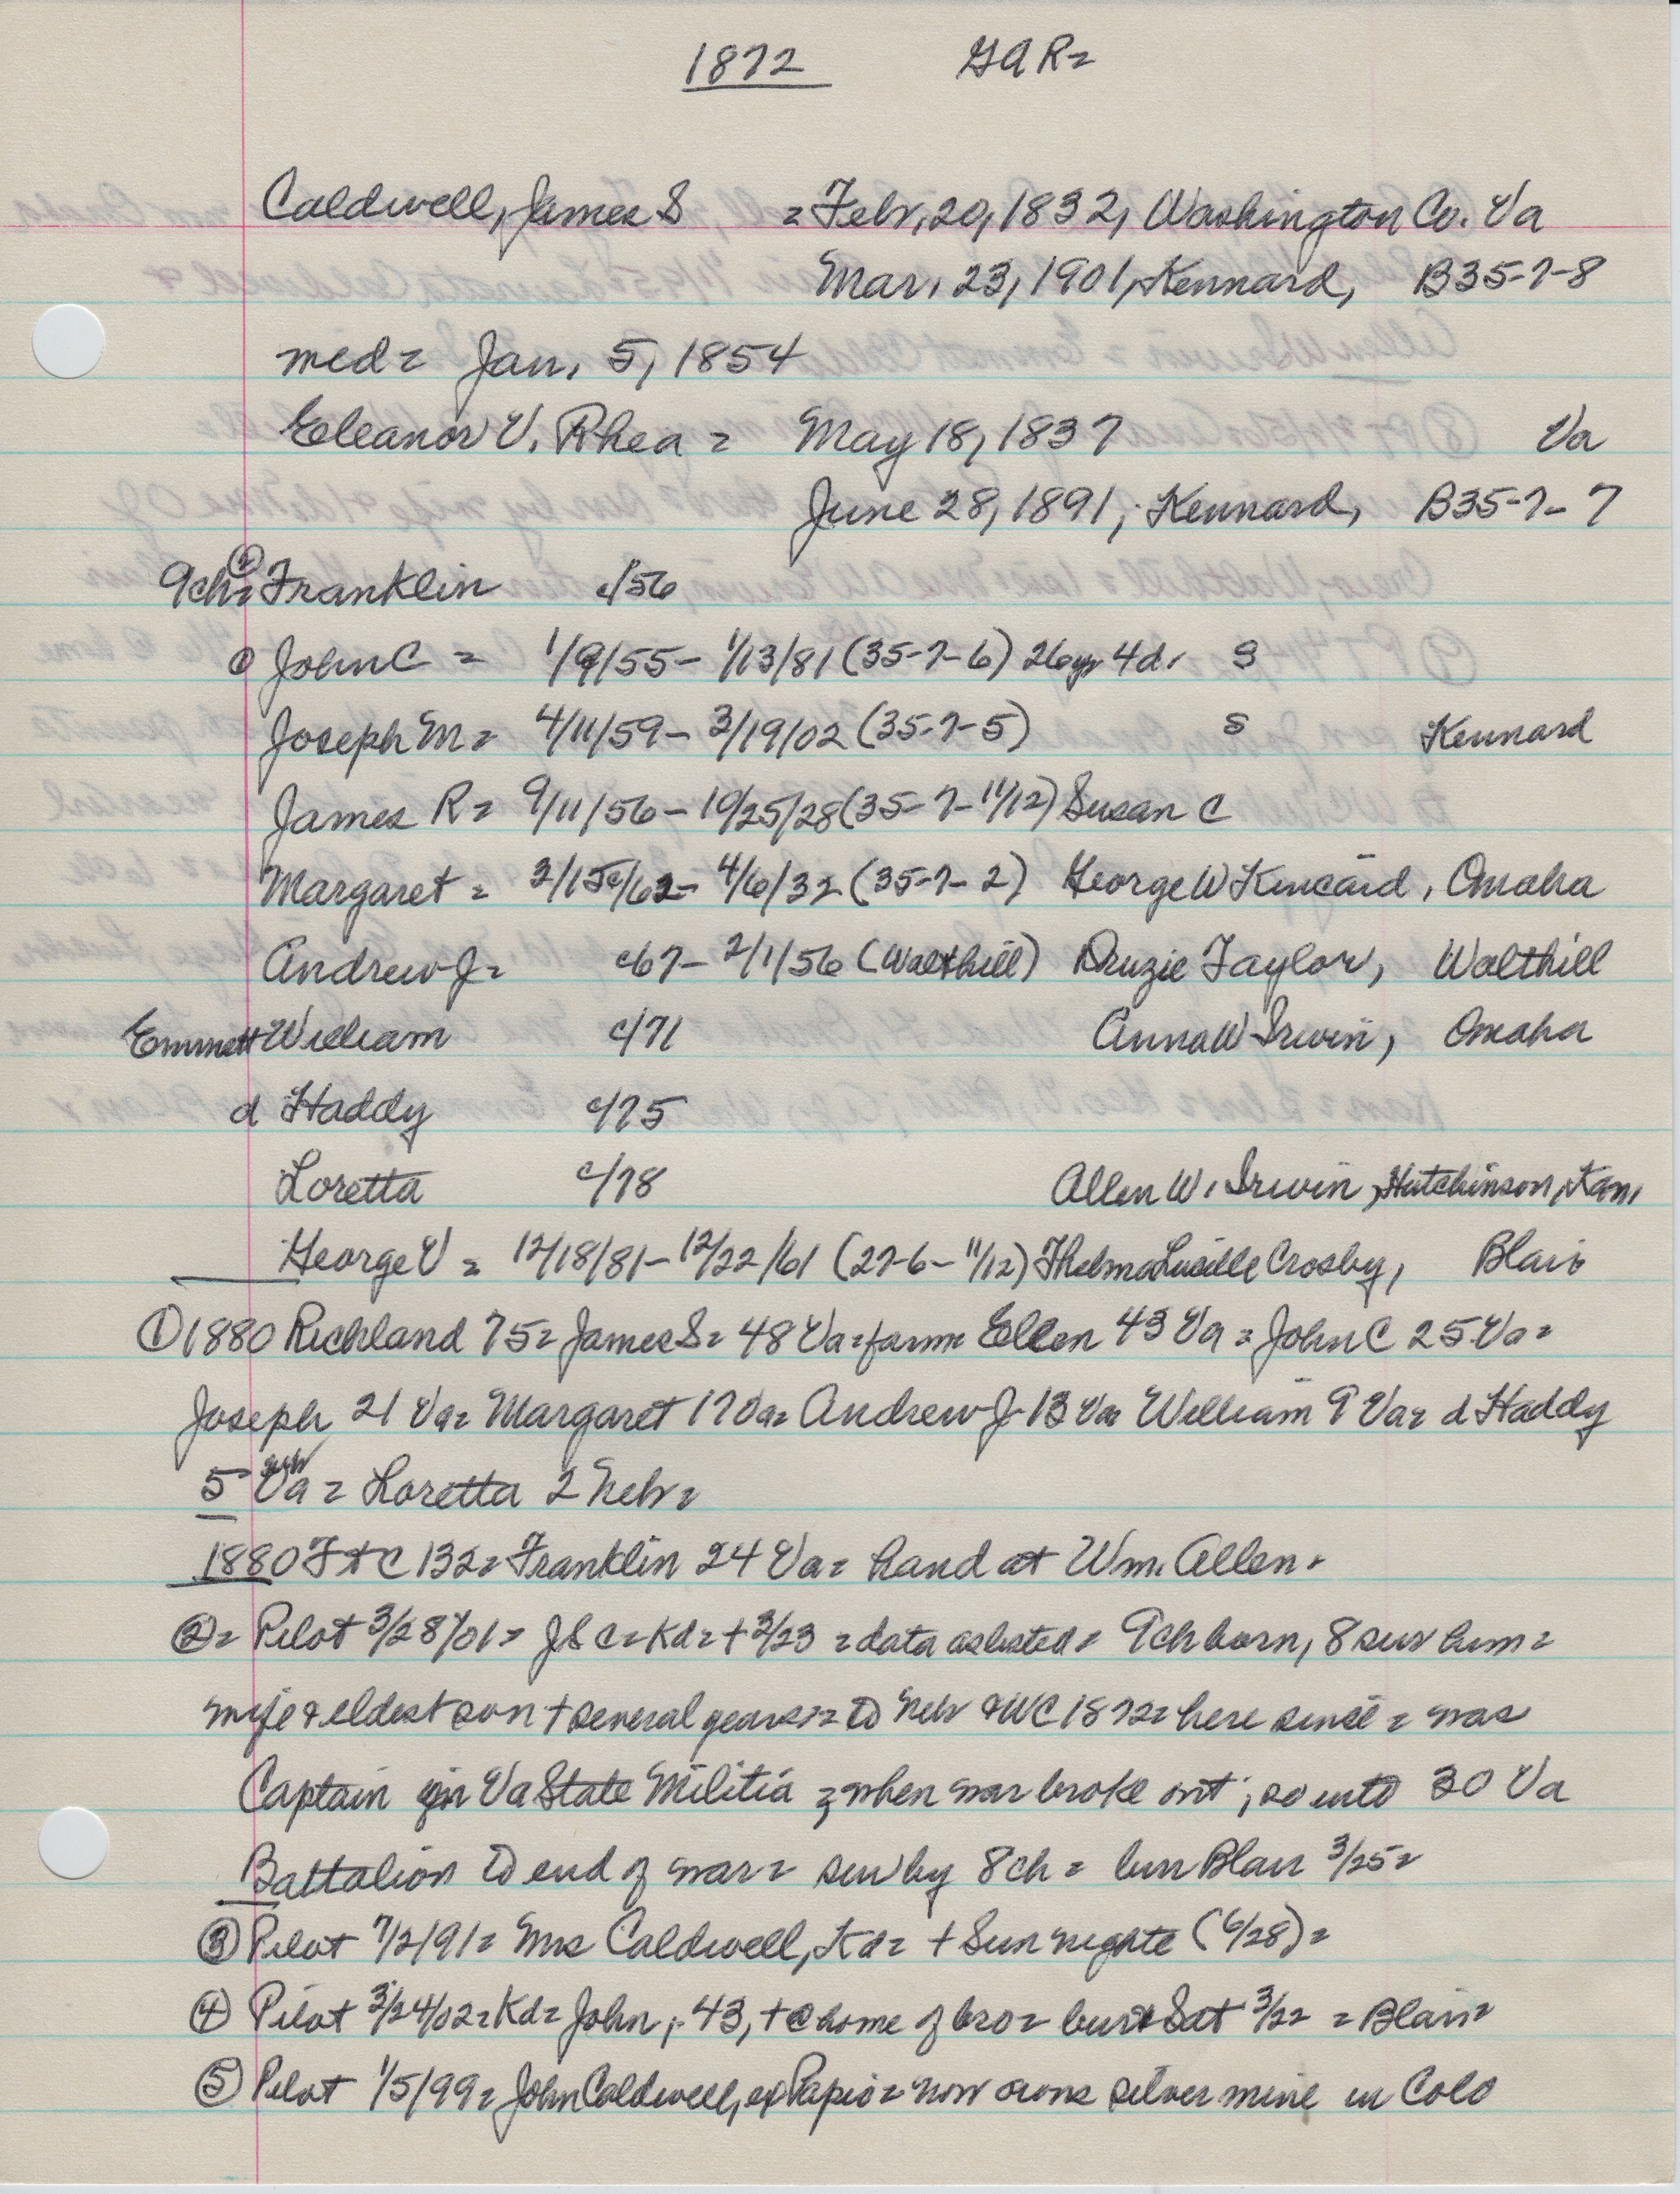 1872 GAR=
Caldwell, James S = Febr, 20, 1832, Washington Co. Va
Mar, 23, 1901, Kennard, B35-7-8
med= Jan, 5, 1854
Eleanor V. Rhea = May 18, 1837 Va
June 28, 1891, Kennard, B35-7-7
9ch= Franklin c/56
① John C = 1/9/55 - 1/13/81 (35-7-6) 26yr 4d, S
Joseph M = 4/11/59 - 3/19/02 (35-7-5) S Kennard
James R = 9/11/56 - 10/25/28 (35-7-11/12) Susan C
Margaret = 4/6/32 (35-7-2) George W Kincaid, Omaha
Andrew J = c67 - 2/1/56 (Walthill) Druzie Taylor, Walthill
Emmett William c/71 Anna W Irwin, Omaha
d Haddy c/75
Loretta c/78 Allen W. Irwin, Hutchinson, Kan,
George V = 12/18/81 - 12/22/61 (27-6-11/12) Thelma Lucille Crosby, Blair
① 1880 Richland 75= James S= 48 Va= farm= Ellen 43 Va = John C 25 Va=
Joseph 21 Va= Margaret 17 Va= Andrew J 13 Va= William 9 Va= d Haddy
5 Va = Loretta 2 Nebr=
1880 Ft C 132= Franklin 24 Va= hand at Wm. Allen.
②= Pilot 3/28/01= JSC= Kd= + 3/23 = data as listed= 9ch born, 8 surv him=
wife & eldest son + several years= to Nebr & WC 1872= here since = was
Captain in Va State Militia = when war broke out; so into 30 Va
Battalion to end of war= surv by 8 ch = bur Blair 3/25=
③ Pilot 7/2/91= Mrs Caldwell, Kd= + Sun nighte (6/28)=
④ Pilot 3/24/02= Kd= John, 43, + @ home of bro= bur Sat 3/22 = Blair=
⑤ Pilot 1/5/99= John Caldwell, ex Papio= now owns silver mine in Colo